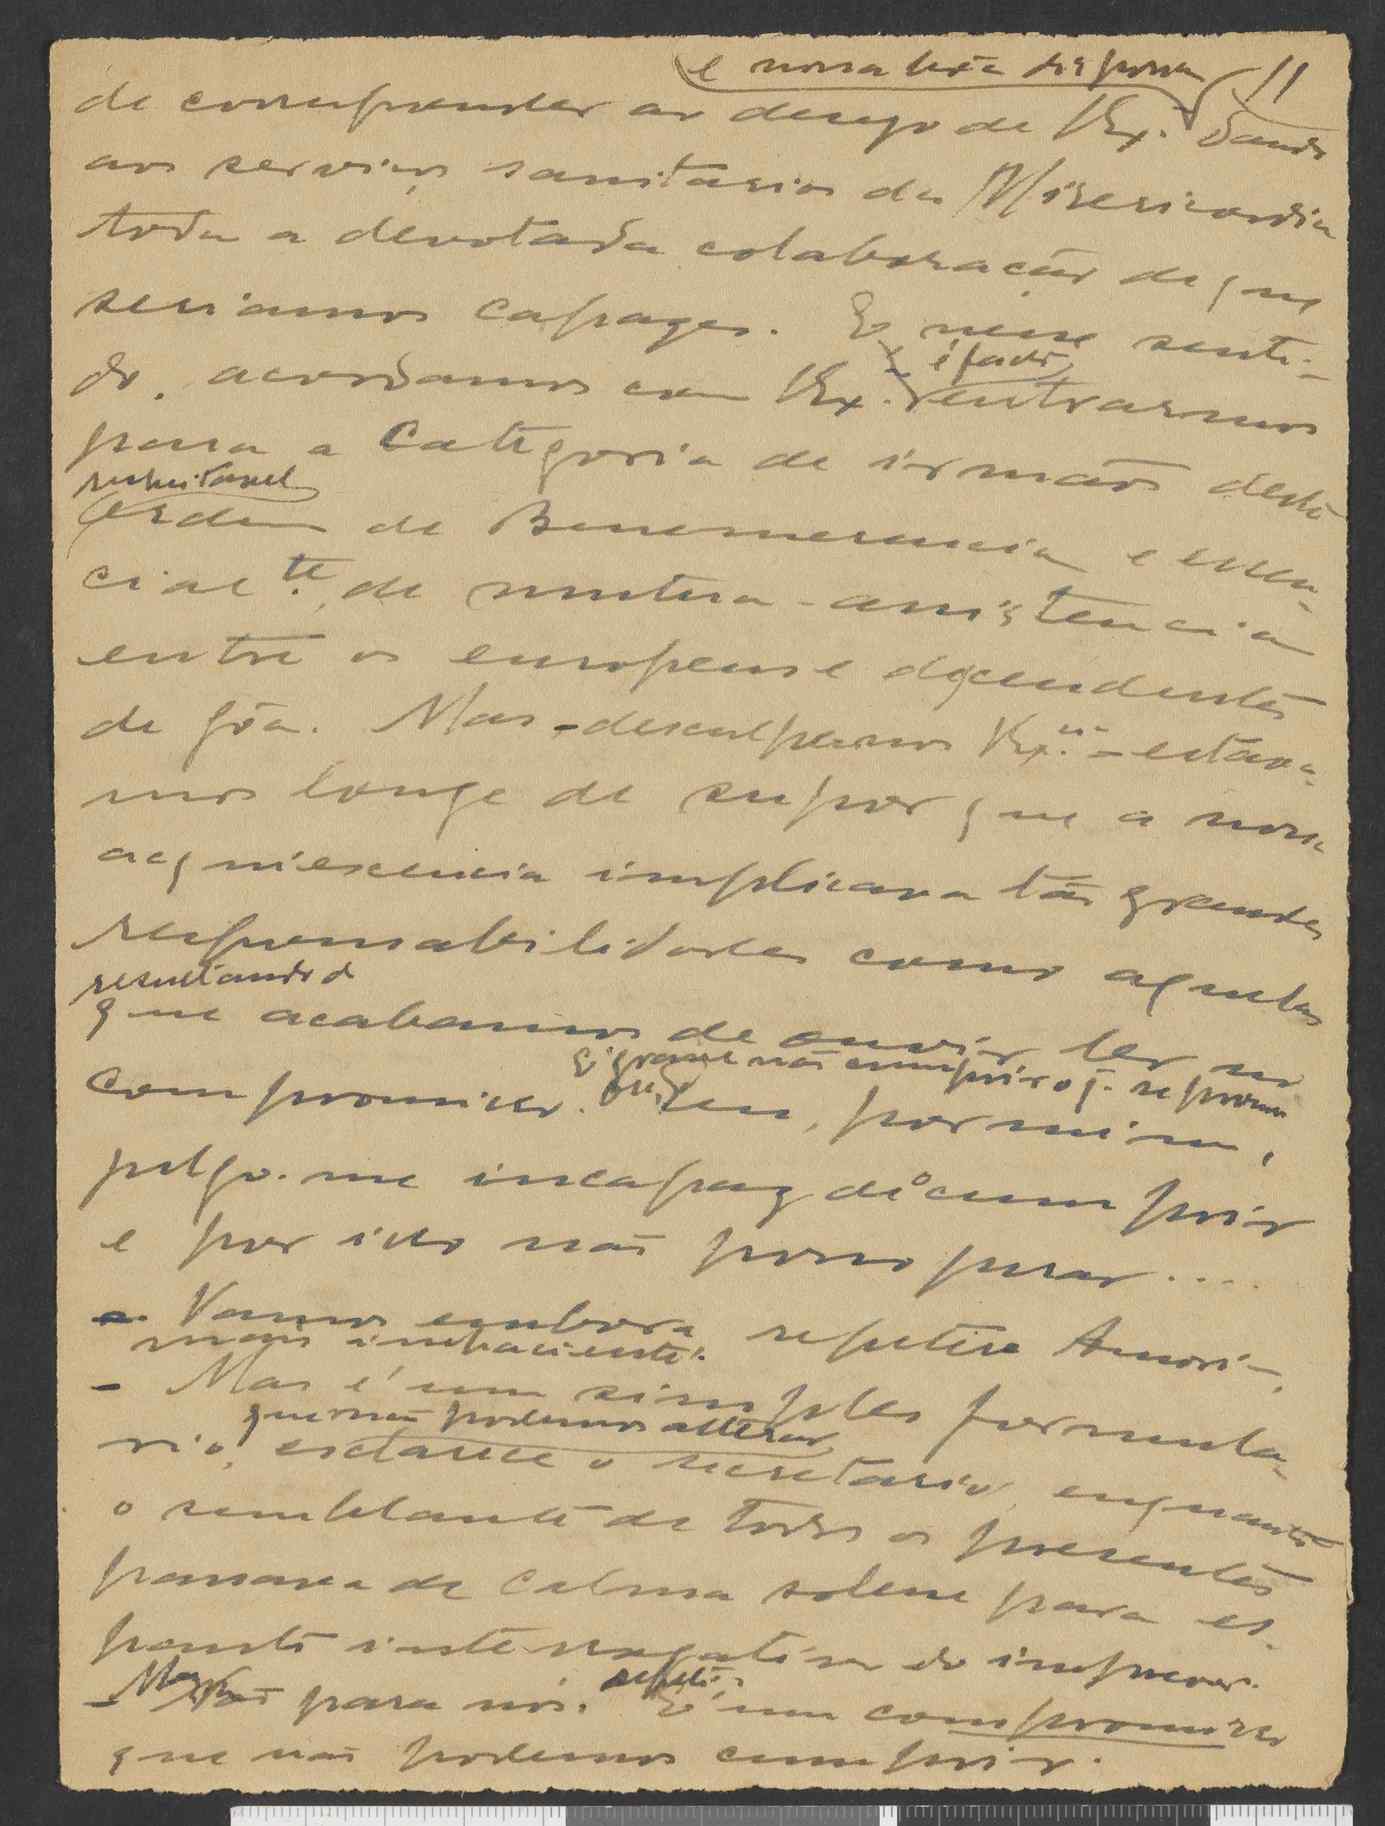 e nossa boa disposi 11
de corresponder ao desejo de VEx.ª dando
aos serviços sanitarios da Misericordia
toda a devotada colaboração de que
seriamos capazes. E nesse senti-
do, acordamos com VEx.as
é facto, entrarmos
para a Categoria de irmãos desta
respeitavel
Ordem de Benemerencia e essen-
cialte. de mutua-assistencia
entre os europeus e descendentes
de Gôa. Mas - desculpem-nos VEx.as - estava-
mos longe de supor que a nossa
acquiescencia implicava tão grandes
responsabilidades como aquelas
resultando d
que acabamos de ouvir ler no
É grave não cumprir o q. se promete
compromisso. Eu, por mim,
julgo-me incapaz de o cumprir
e por isso não posso jurar....
- Vamos embora, repetiu Amorim,
mais impaciente.
- Mas é um simples formula-
que não podemos alterar,
rio, esclarece o secretario, enquanto
o semblante de todos os presentes
passava da calma solene para es-
panto interrogativo do imprevisto.
- Mas não para nós. repetiu É um compromisso
que não podemos cumprir.